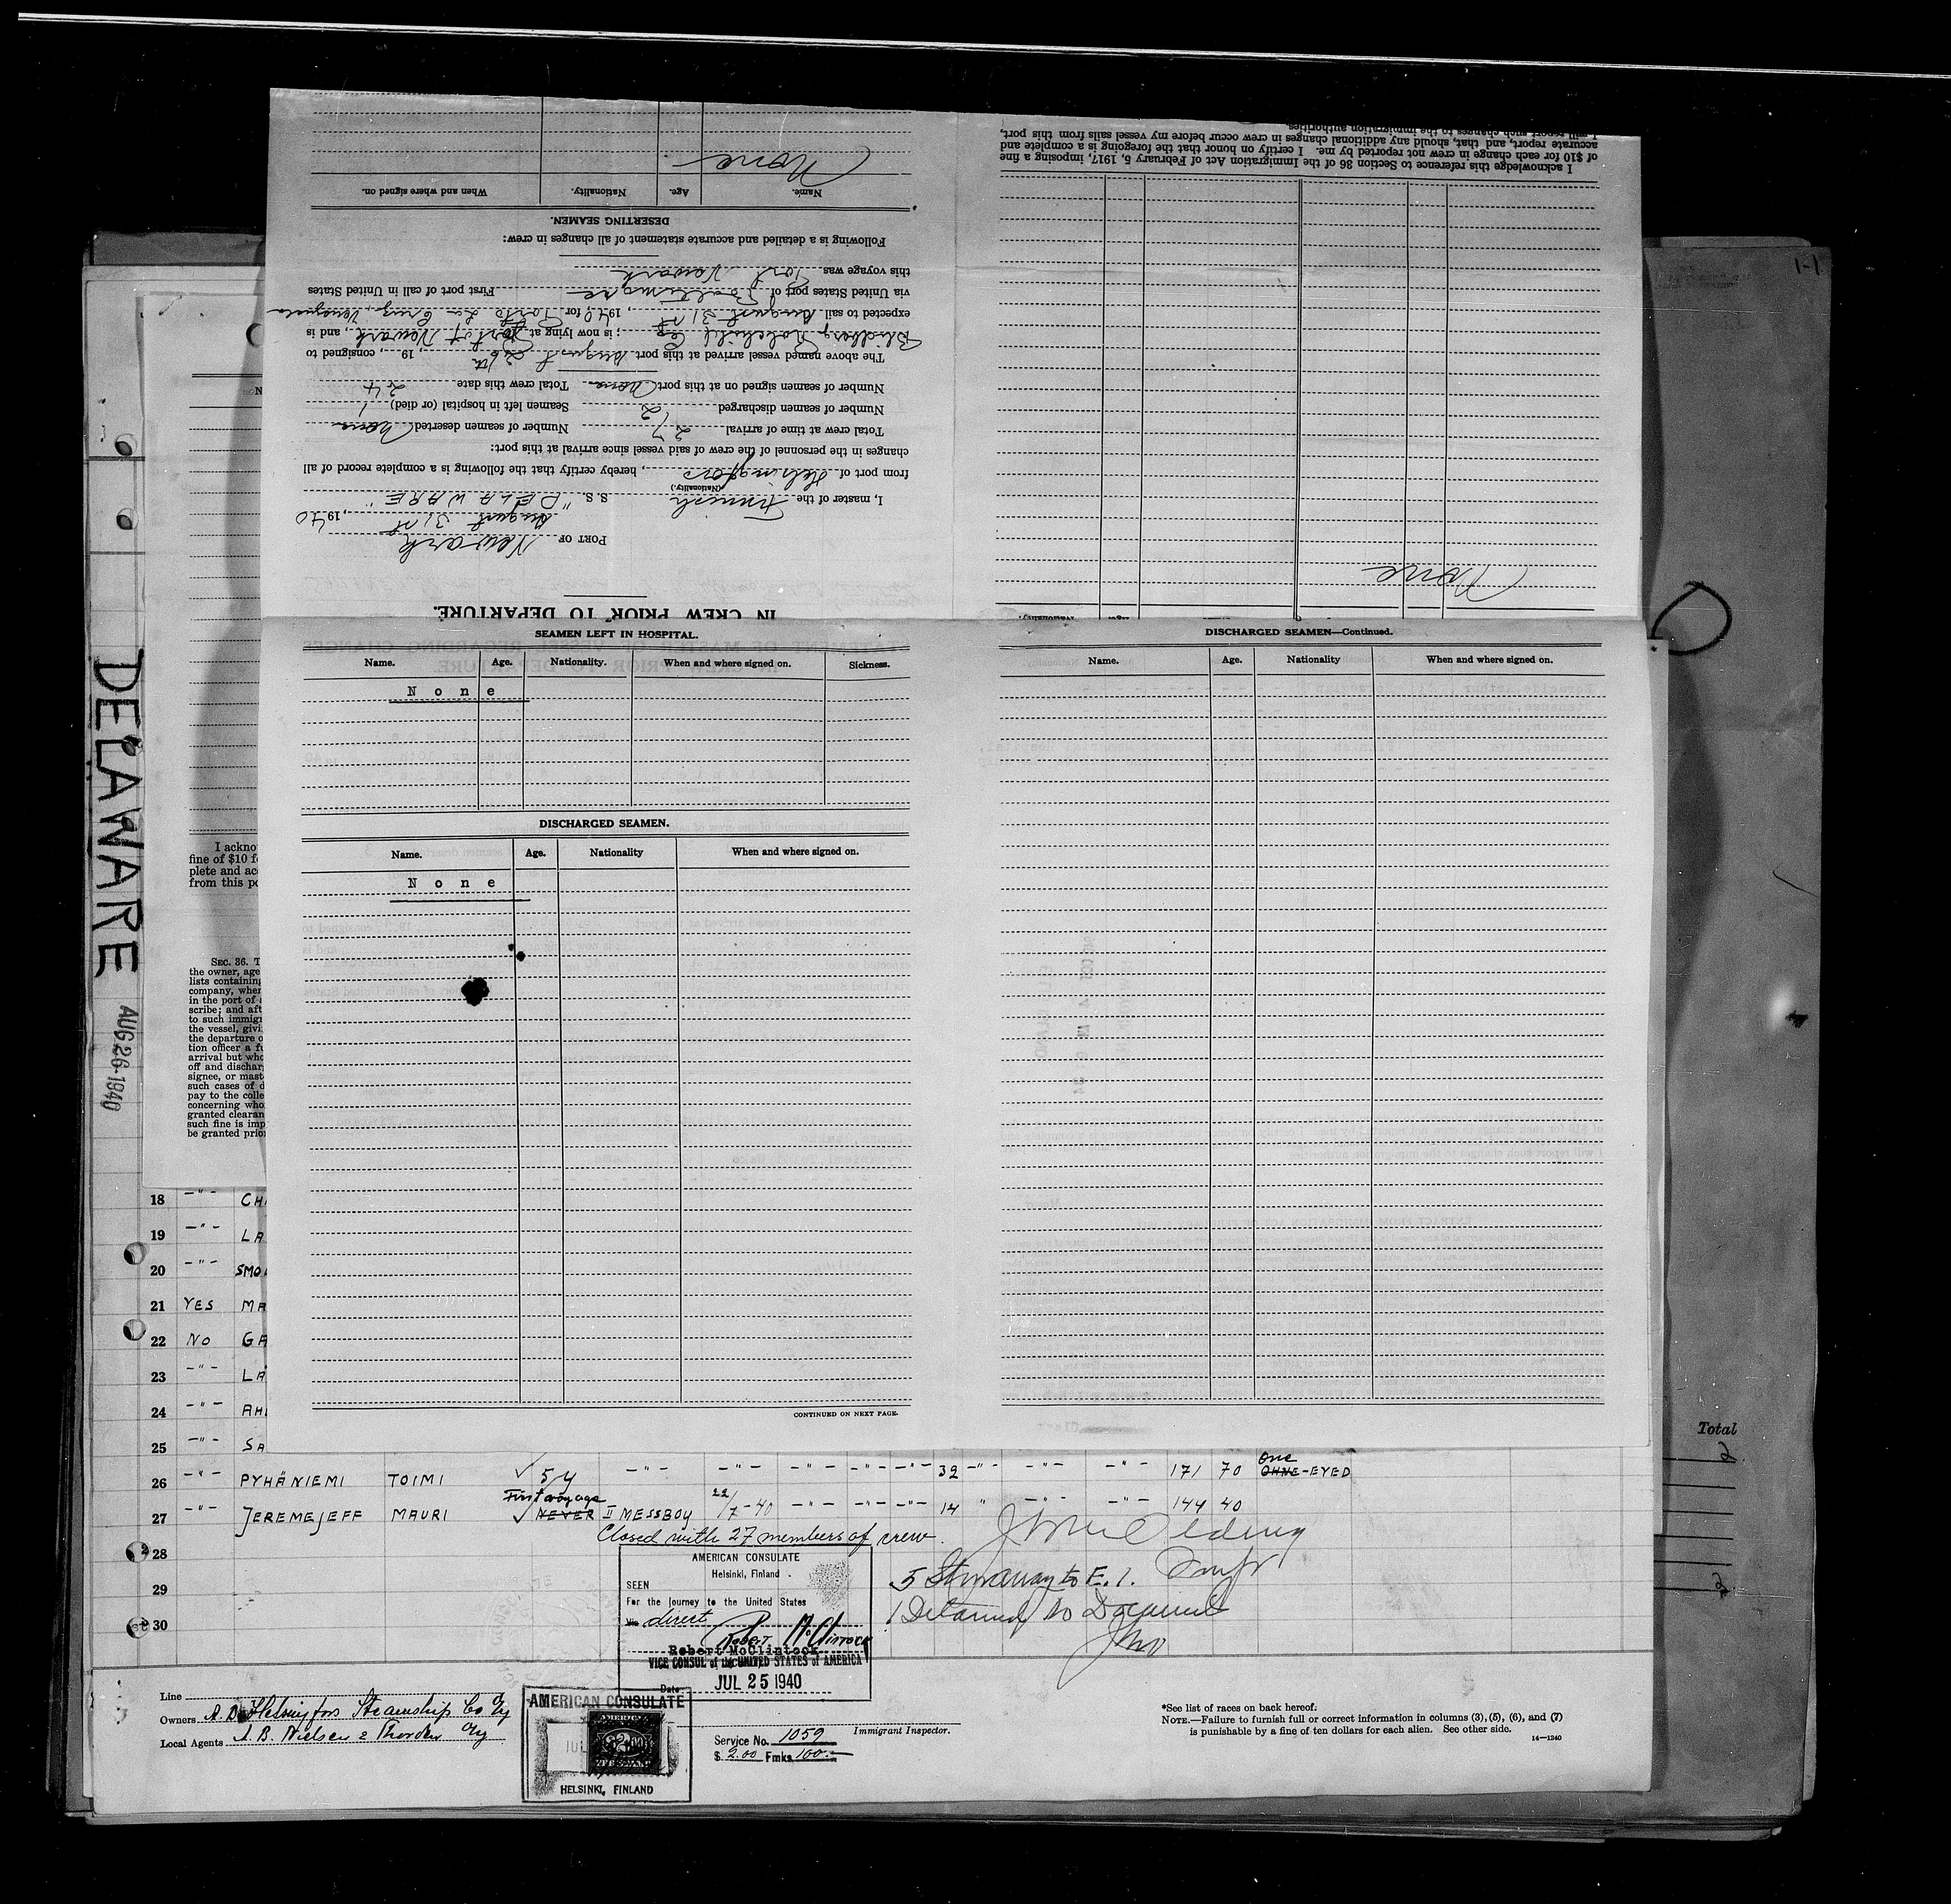 1-1
I acknowledge this reference to Section 36 of the Immigration Act of February 5, 1917, imposing a fine
of $10 for each change in crew not reported by me. I certify on honor that the foregoing is a complete and
accurate report, and that, should any additional changes in crew occur before my vessel sails from this port,
I will report such changes to the immigration authorities.
None
IN CREW PRIOR TO DEPARTURE.
PORT OF Newark
August 31st, 1940
I, master of the Finnish S. S. "DELAWARE"
(Nationality.)
from port of Helsingfors, hereby certify that the following is a complete record of all
changes in the personnel of the crew of said vessel since arrival at this port:
Total crew at time of arrival 27 Number of seamen deserted None
Number of seamen discharged 2 Seamen left in hospital (or died) 1
Number of seamen signed on at this port None Total crew this date 24
The above named vessel arrived at this port August 26th, 19 , consigned to
; is now lying at Port of Newark, and is
expected to sail August 31st, 1940 for Puerto La Cruz, Venezuela
via United States port of Baltimore First port of call in United States
this voyage was Port Newark
Following is a detailed and accurate statement of all changes in crew:
DESERTING SEAMEN.
Name. Age. Nationality. When and where signed on.
None
SEAMEN LEFT IN HOSPITAL.
Name. Age. Nationality. When and where signed on. Sickness.
None
DISCHARGED SEAMEN.
Name. Age. Nationality When and where signed on.
None
CONTINUED ON NEXT PAGE.
DISCHARGED SEAMEN—Continued.
Name. Age. Nationality When and where signed on.
DELAWARE AUG 26-1940
I ackno
fine of $10 f
plete and acc
from this po
SEC. 36. T
the owner, age
lists containing
company, wher
in the port of
scribe; and aft
to such immigr
the vessel, givi
the departure o
tion officer a fu
arrival but who
off and dischar
signee, or mast
such cases of d
pay to the colle
concerning who
granted clearan
such fine is imp
be granted prior
18 –"– CHA
19 –"– LA
20 –"– SMO
21 YES MA
22 NO GA
23 –"– LA
24 –"– AHL
25 –"– SA
26 –"– PYHÄNIEMI TOIMI ✓ 5y –"– –"– –"– –"– –"– 32 –"– –"– –"– 171 70 One OHNE-EYED
27 –"– JEREMEJEFF MAURI First voyage ✓ NEVER II MESSBOY 22/7-40 –"– –"– –"– 14 " –"– –"– 144 40
Closed with 27 members of crew.
28
29
30
5 Stowaway to E. I.
1 Detained No Document
AMERICAN CONSULATE
Helsinki, Finland
SEEN
For the journey to the United States
Via direct
Robert McClintock
VICE CONSUL of the UNITED STATES of AMERICA
Date JUL 25 1940
Line
Owners A. B. Helsingfors Steamship Co Oy
Local Agents A. B. Nielsen & Thorden Oy
AMERICAN CONSULATE
HELSINKI, FINLAND
Service No. 1059
$ 2.00 Fmks 100:—
Immigrant Inspector.
*See list of races on back hereof.
NOTE.—Failure to furnish full or correct information in columns (3), (5), (6), and (7)
is punishable by a fine of ten dollars for each alien. See other side.
14—1240
Total
2
2